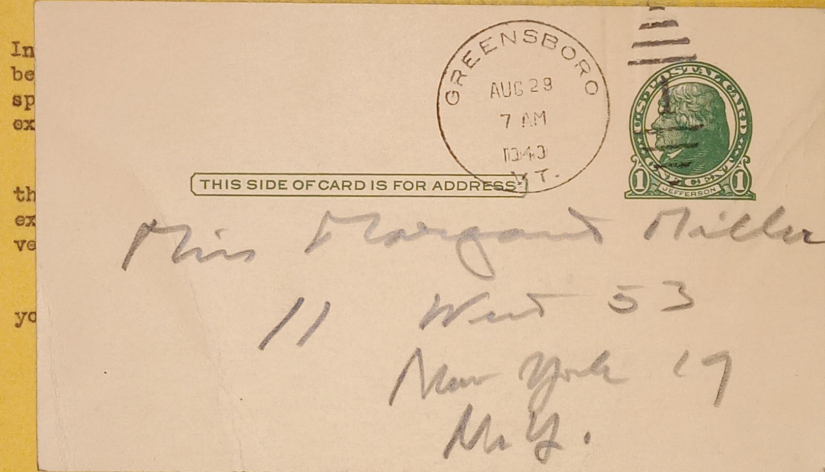 In
be
sp
ex
th
ex
ve
yo
GREENSBORO
AUG 29
7 AM
VT.
U.S. POSTAL CARD
ONE CENT
1 JEFFERSON 1
THIS SIDE OF CARD IS FOR ADDRESS
Miss Margaret Miller
11 West 53
New York 19
N.Y.